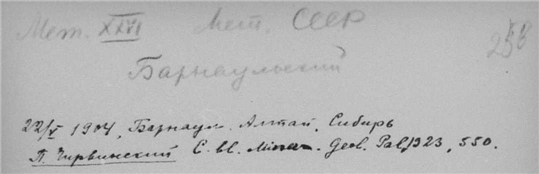 Мет. XXVI Мет. СССР
Барнаульский
22/V 1904, Барнаул. Алтай, Сибирь
П. Чирвинский C. bl. Miner. Geol. Pal. 1923, 550.